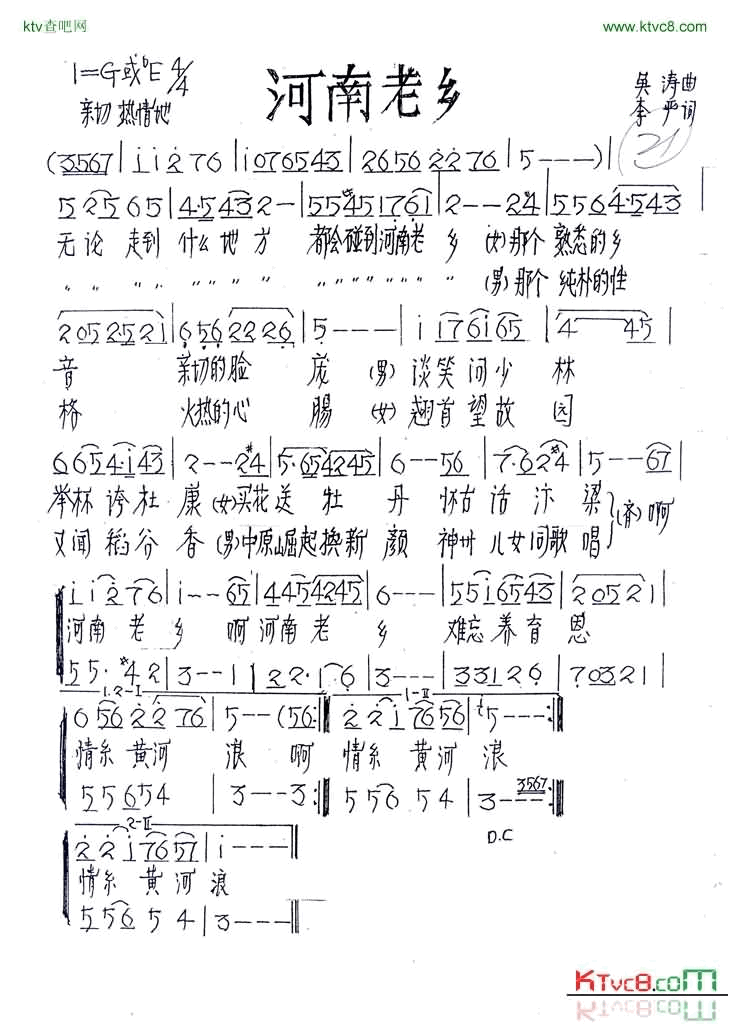 ktv查吧网 www.ktvc8.com
1=G或♭E 4/4
河南老乡
吴涛曲
亲切 热情地
李严词
21
(3567|i i 2 7 6|i 0 7 6 5 4 3|2 6 5 6 2 2 7 6|5 - - -)|
5 2 5 6 5|4·5 4 3 2 -|5 5 #4 5 1 7 6 1|2 - - 2 #4|5 5 6 4·5 4 3|
无论 走到 什么 地方 都会碰到河南老 乡 (女)那个 熟悉的乡
〃 〃 〃 〃 〃 〃 〃 〃 〃 〃 〃 〃 〃 〃 〃 (男)那个 纯朴的性
2 0 5 2·5 2 1|6 5 6 2 2 2 6|5 - - -|i i 7 6 i 6 5|4 - - 4 5|
音 亲切的脸 庞 (男)谈笑问少 林
格 火热的心 肠 (女)翘首望故 园
6 6 5 4·i 4 3|2 - - 2 #4|5·6 5 4 2 4 5|6 - - 5 6|7·6 2 #4|5 - - 6 7|
举杯 夸杜 康 (女)买花送 牡 丹 怀古 话 汴 梁
又闻 稻谷 香 (男)中原崛起换新 颜 神州 儿女同歌 唱 (齐)啊
i i 2 7 6|i - - 6 5|4 4 5 4 2 4 5|6 - - -|5 5 i 6 5 4 3|2 0 5 2 1|
河南 老 乡 啊 河南 老 乡 难忘 养育 恩
5 5·#4 2|3 - - 1|2 2·1 6|3 - - -|3 3 1 2 6|7 0 3 2 1|
1.2-I 1-II
6 5 6 2 2 7 6|5 - - (5 6:‖2 2 i 7 6 5 6|5 - - -:‖
情系 黄河 浪 啊 情系 黄河 浪
5 5 6 5 4|3 - - 3:‖5 5 6 5 4|3 - - 3567:‖
D.C
2-II
2 2 i 7 6 5 7|i - - -‖
情系 黄河 浪
5 5 6 5 4|3 - - -‖
KTvc8.com